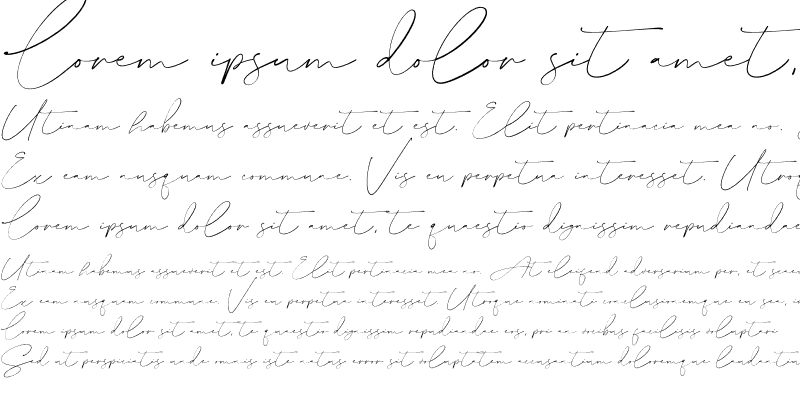 lorem ipsum dolor sit amet,
Utinam habemus assueverit et est. Elit pertinacia mea no.
Ex eam nusquam commune. Vis eu perpetua interesset. Utroq
lorem ipsum dolor sit amet, te quaestio dignissim repudiandae
Utinam habemus assueverit et est. Elit pertinacia mea no. At eleifend adversarium per, et
Ex eam nusquam commune. Vis eu perpetua interesset. Utroque nominati conclusionemque eu sea,
lorem ipsum dolor sit amet, te quaestio dignissim repudiandae eos, pri an vocibus facilisis voluptari
Sed ut perspiciatis unde omnis iste natus error sit voluptatem accusantium doloremque laudantium